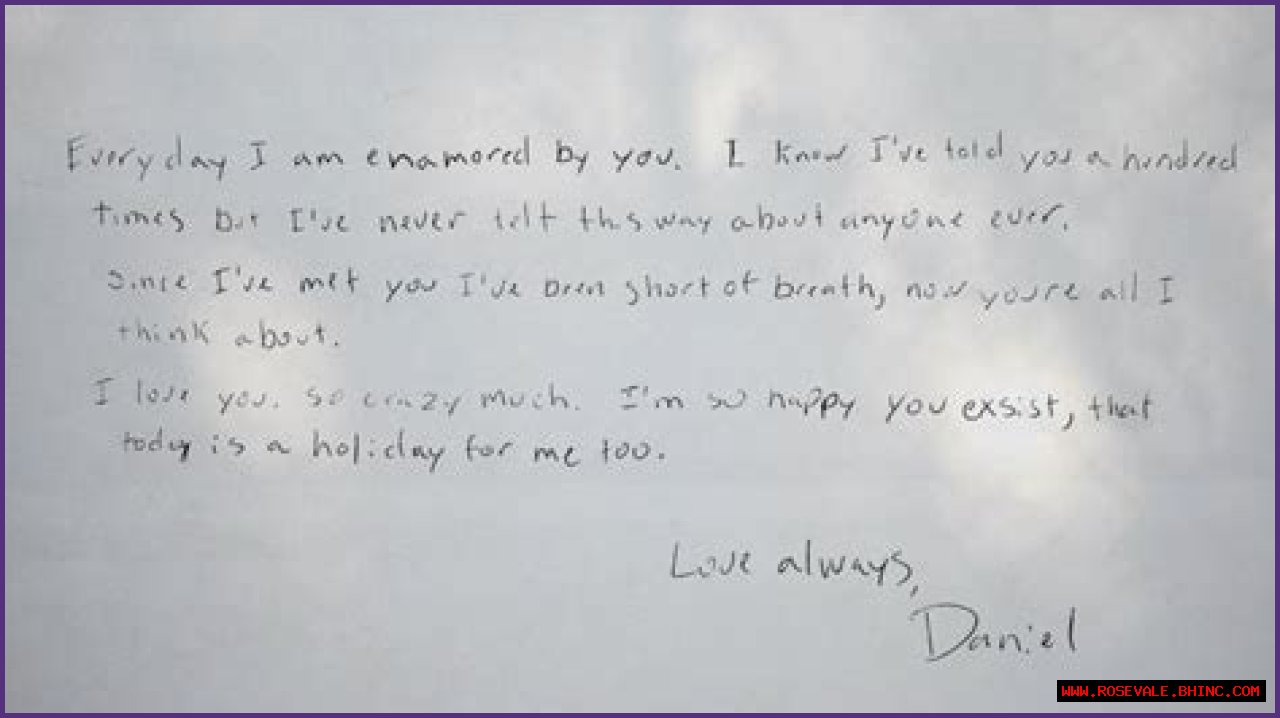 Everyday I am enamored by you. I know I've told you a hundred
times but I've never felt this way about anyone ever.
Since I've met you I've been short of breath, now you're all I
think about.
I love you. so crazy much. I'm so happy you exsist, that
today is a holiday for me too.
Love always,
Daniel
WWW.ROSEVALE.BHINC.COM